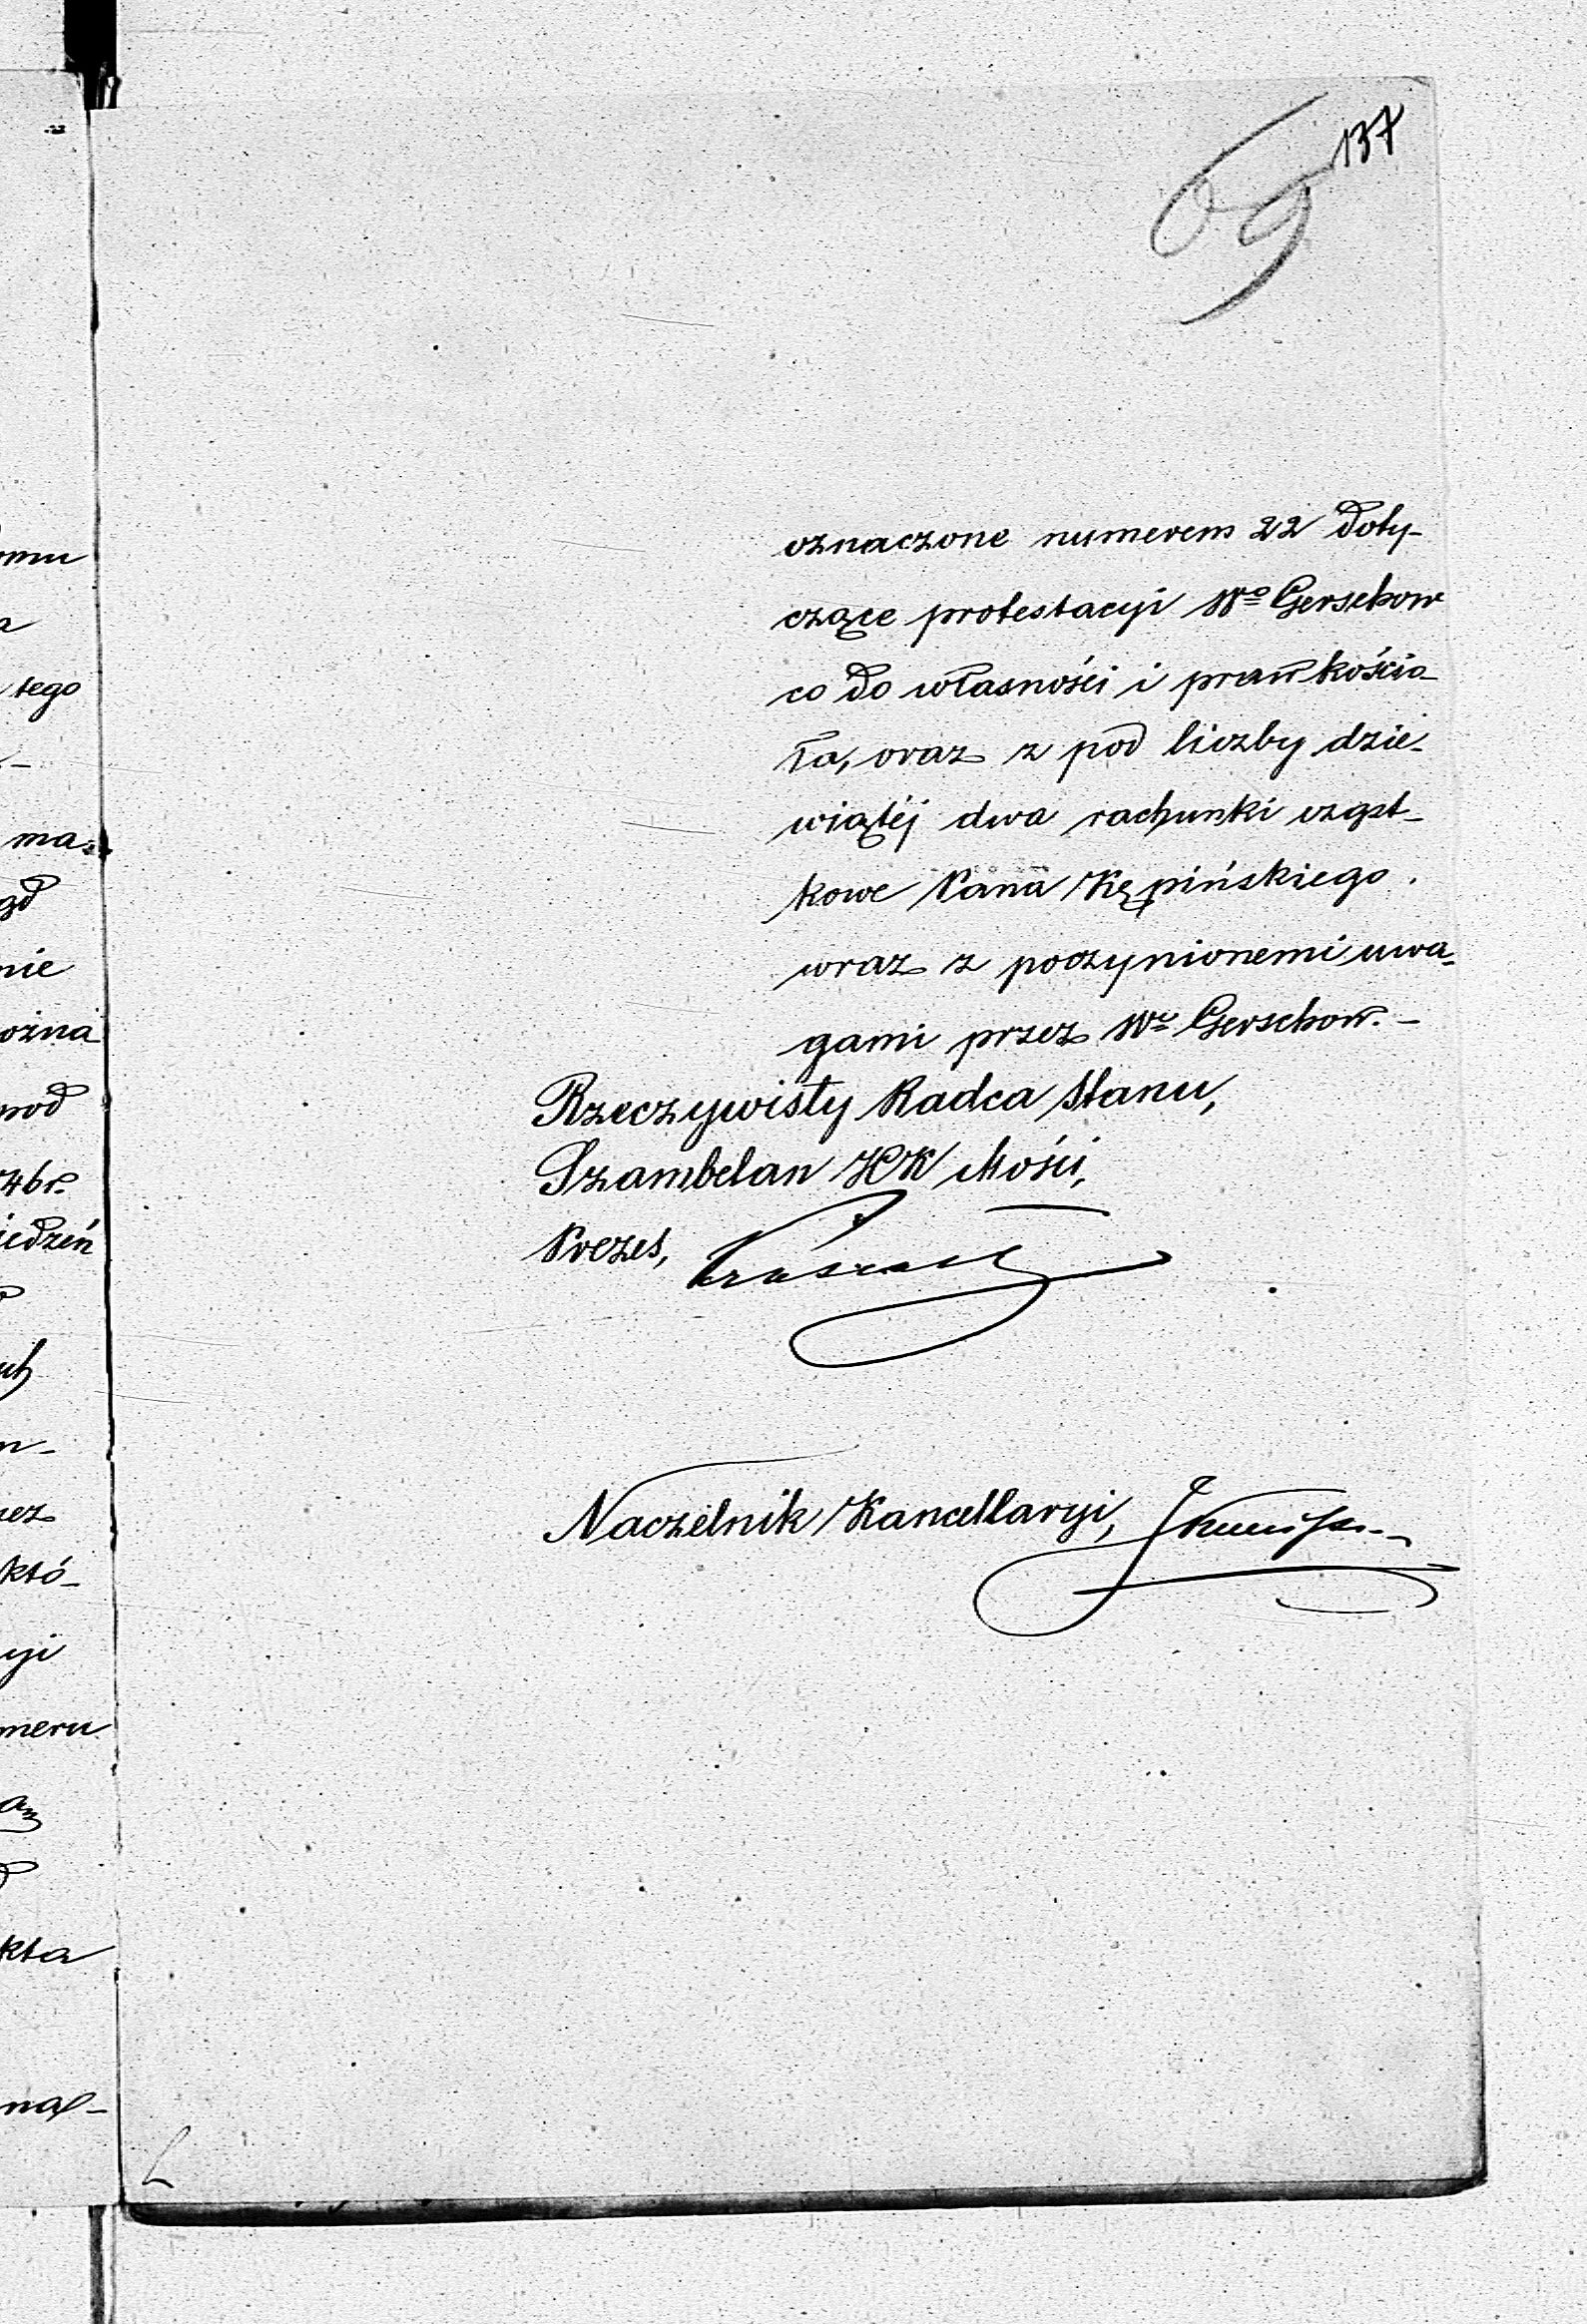 137
69
oznaczone numerem 22 doty-
czące protestacyi Wº Gerschow
co do własności i praw kościo-
ła, oraz z pod liczby dzie-
wiątéj dwa rachunki cząst-
kowe Pana Kępińskiego.
wraz z poczynionemi uwa-
gami przez Wº Gerschow. -
Rzeczywisty Radca Stanu,
Szambelan JCK Mości,
Prezes,
Naczelnik Kancellaryi,
tego
ma-
nie
ożna
pod
46 r.
iedzeń
któ-
yi
meru
kta